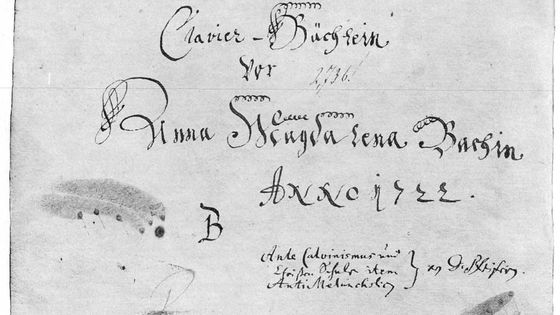 Clavier-Büchlein
vor
Anna Magdalena Bachin
ANNO 1722.
B
Ante Calvinismus und
Christen Schule item
AntiMelancholicus